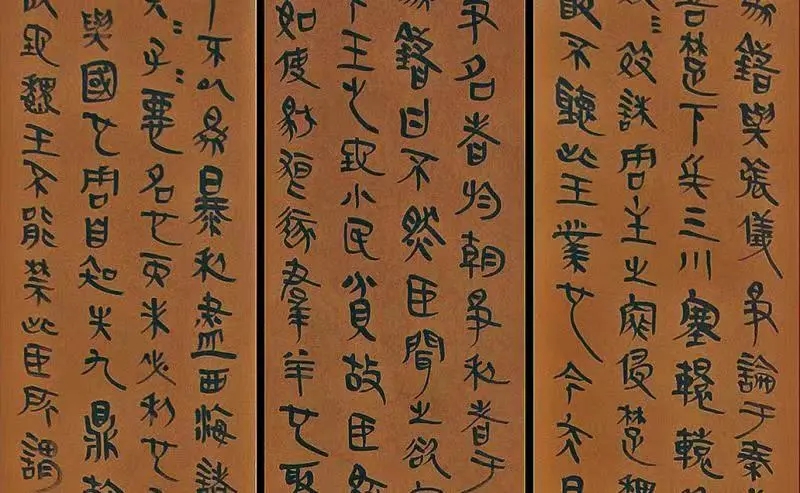 錯與張儀爭論于秦
善楚下兵三川塞轘轅
郊誅周主之罪侵楚魏
敢不聽此王業也今夫
爭名者於朝爭利者于
錯曰不然臣聞之欲
下王之地小民貧故臣
如使豺狼逐羣羊也取
下不以為暴利盡西海諸
天〻子〻惡名也而未必利也
與國也周自知失九鼎韓
地魏王不能禁此臣所謂